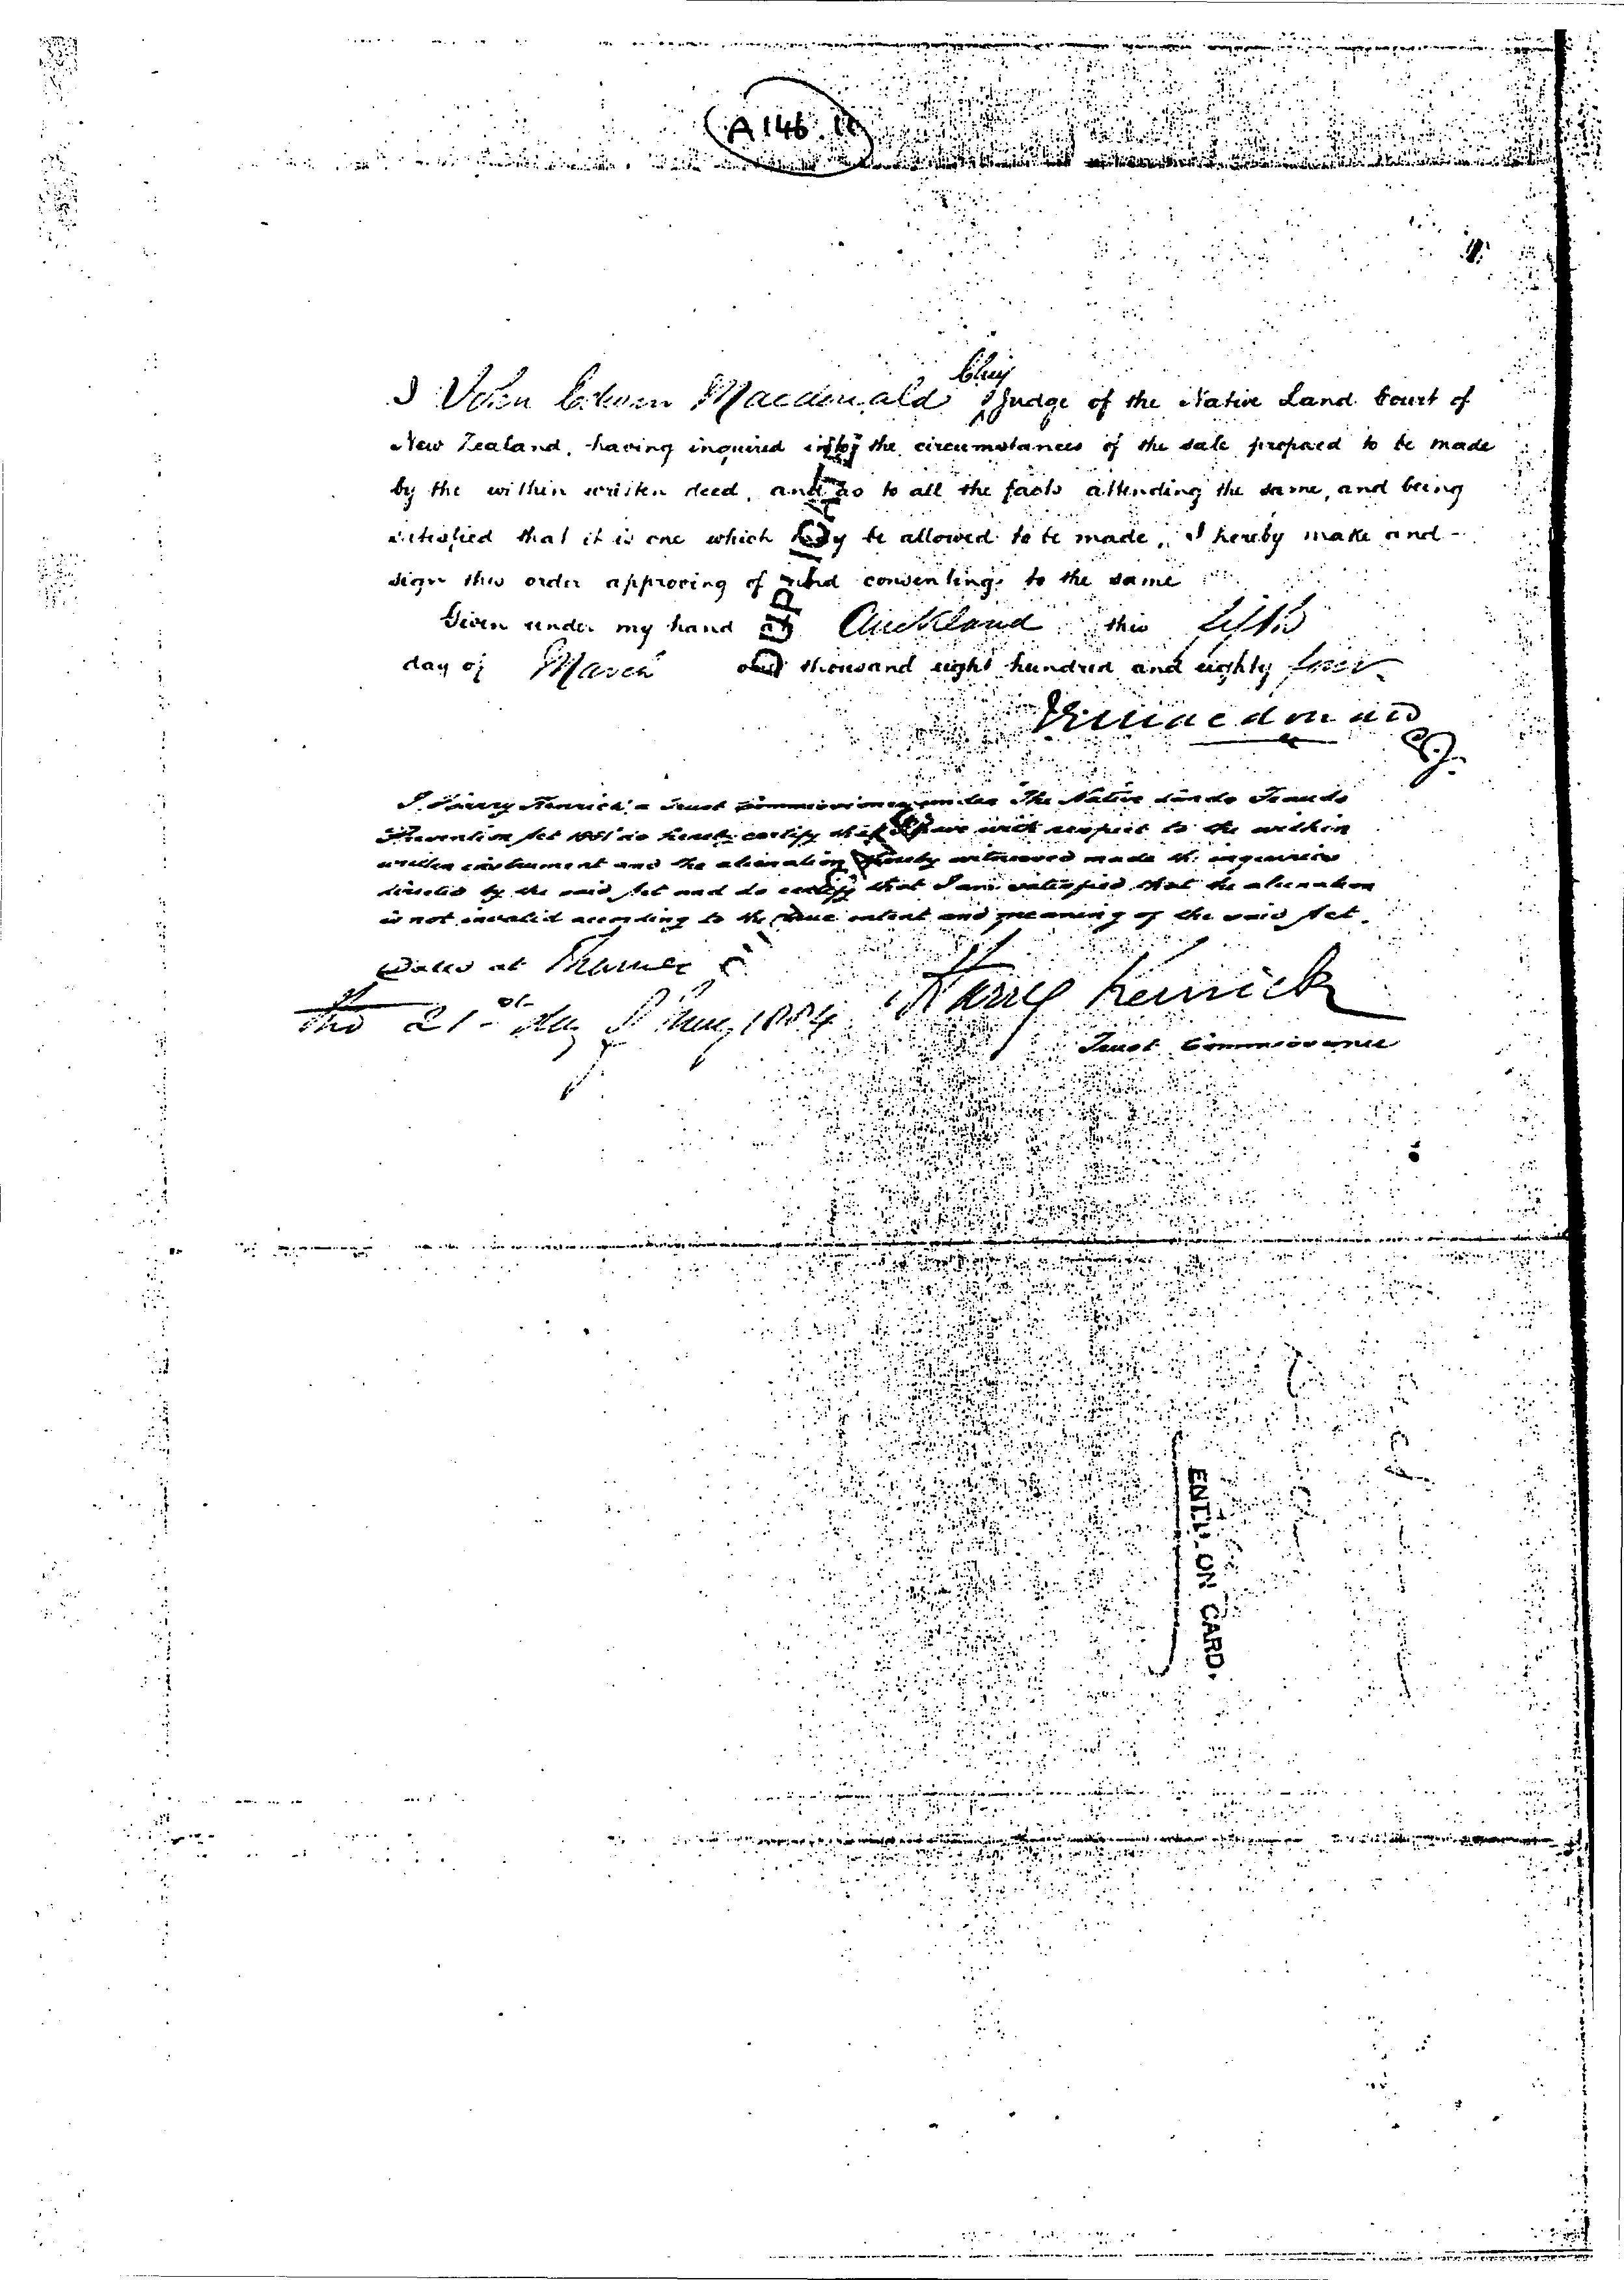 A146.
Chief
I John Edwin Macdonald Judge of the Native Land Court of
New Zealand, having inquired into the circumstances of the sale proposed to be made
by the within written deed, and as to all the facts attending the same, and being
satisfied that it is one which may be allowed to be made, I hereby make and
sign this order approving of and consenting to the same
Given under my hand at Auckland this fifth
day of March one thousand eight hundred and eighty four
Macdonald
CJ.
DUPLICATE
I Harry Kenrick a Trust Commissioner under The Native Lands Frauds
Prevention Act 1881 do hereby certify that I have with respect to the within
written instrument and the alienation thereby witnessed made the inquiries
directed by the said Act and do certify that I am satisfied that the alienation
is not invalid according to the true intent and meaning of the said Act.
Dated at Thames
this 21st day of 1884 Harry Kenrick
Trust Commissioner
ENTD. ON CARD.